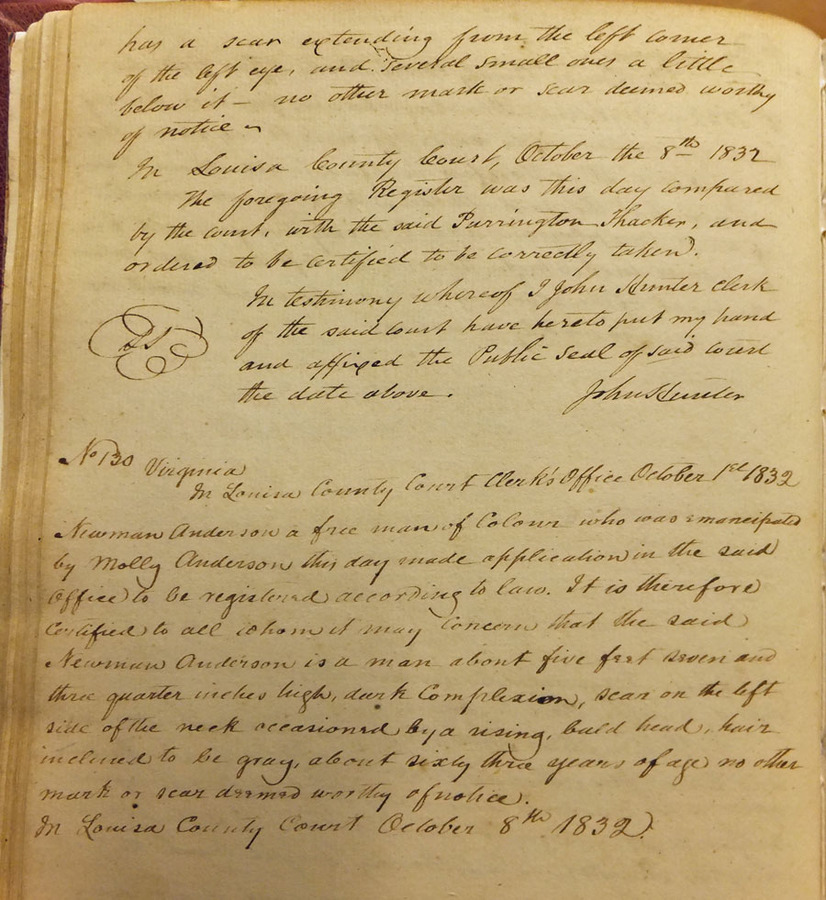 has a scar extending from the left corner
of the left eye, and several small ones a little
below it — no other mark or scar deemed worthy
of notice ~
In Louisa County Court, October the 8th 1832
The foregoing Register was this day compared
by the court, with the said Purrington Thacker, and
ordered to be certified to be correctly taken.
In testimony whereof I John Hunter clerk
of the said court have hereto put my hand
and affixed the Public Seal of said court
the date above.
John Hunter
No 130 Virginia
In Louisa County Court Clerk's Office October 1st 1832
Newman Anderson a free man of Colour who was emancipated
by Molly Anderson this day made application in the said
Office to be registered according to law. It is therefore
Certified to all whom it may Concern that the said
Newman Anderson is a man about five feet seven and
three quarter inches high, dark Complexion, scar on the left
side of the neck occasioned by a rising, bald head, hair
inclined to be gray, about sixty three years of age no other
mark or scar deemed worthy of notice.
In Louisa County Court October 8th 1832.